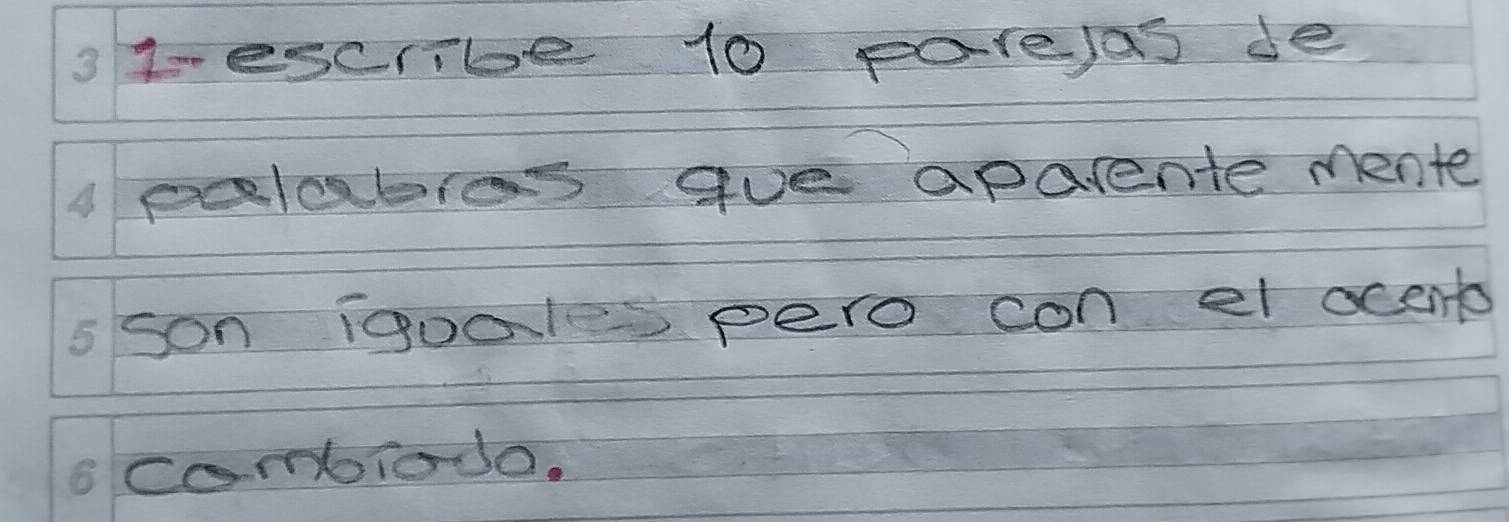 3 1- escribe 10 parejas de
4 palabras que aparente mente
5 son iguales pero con el acento
6 cambiado.